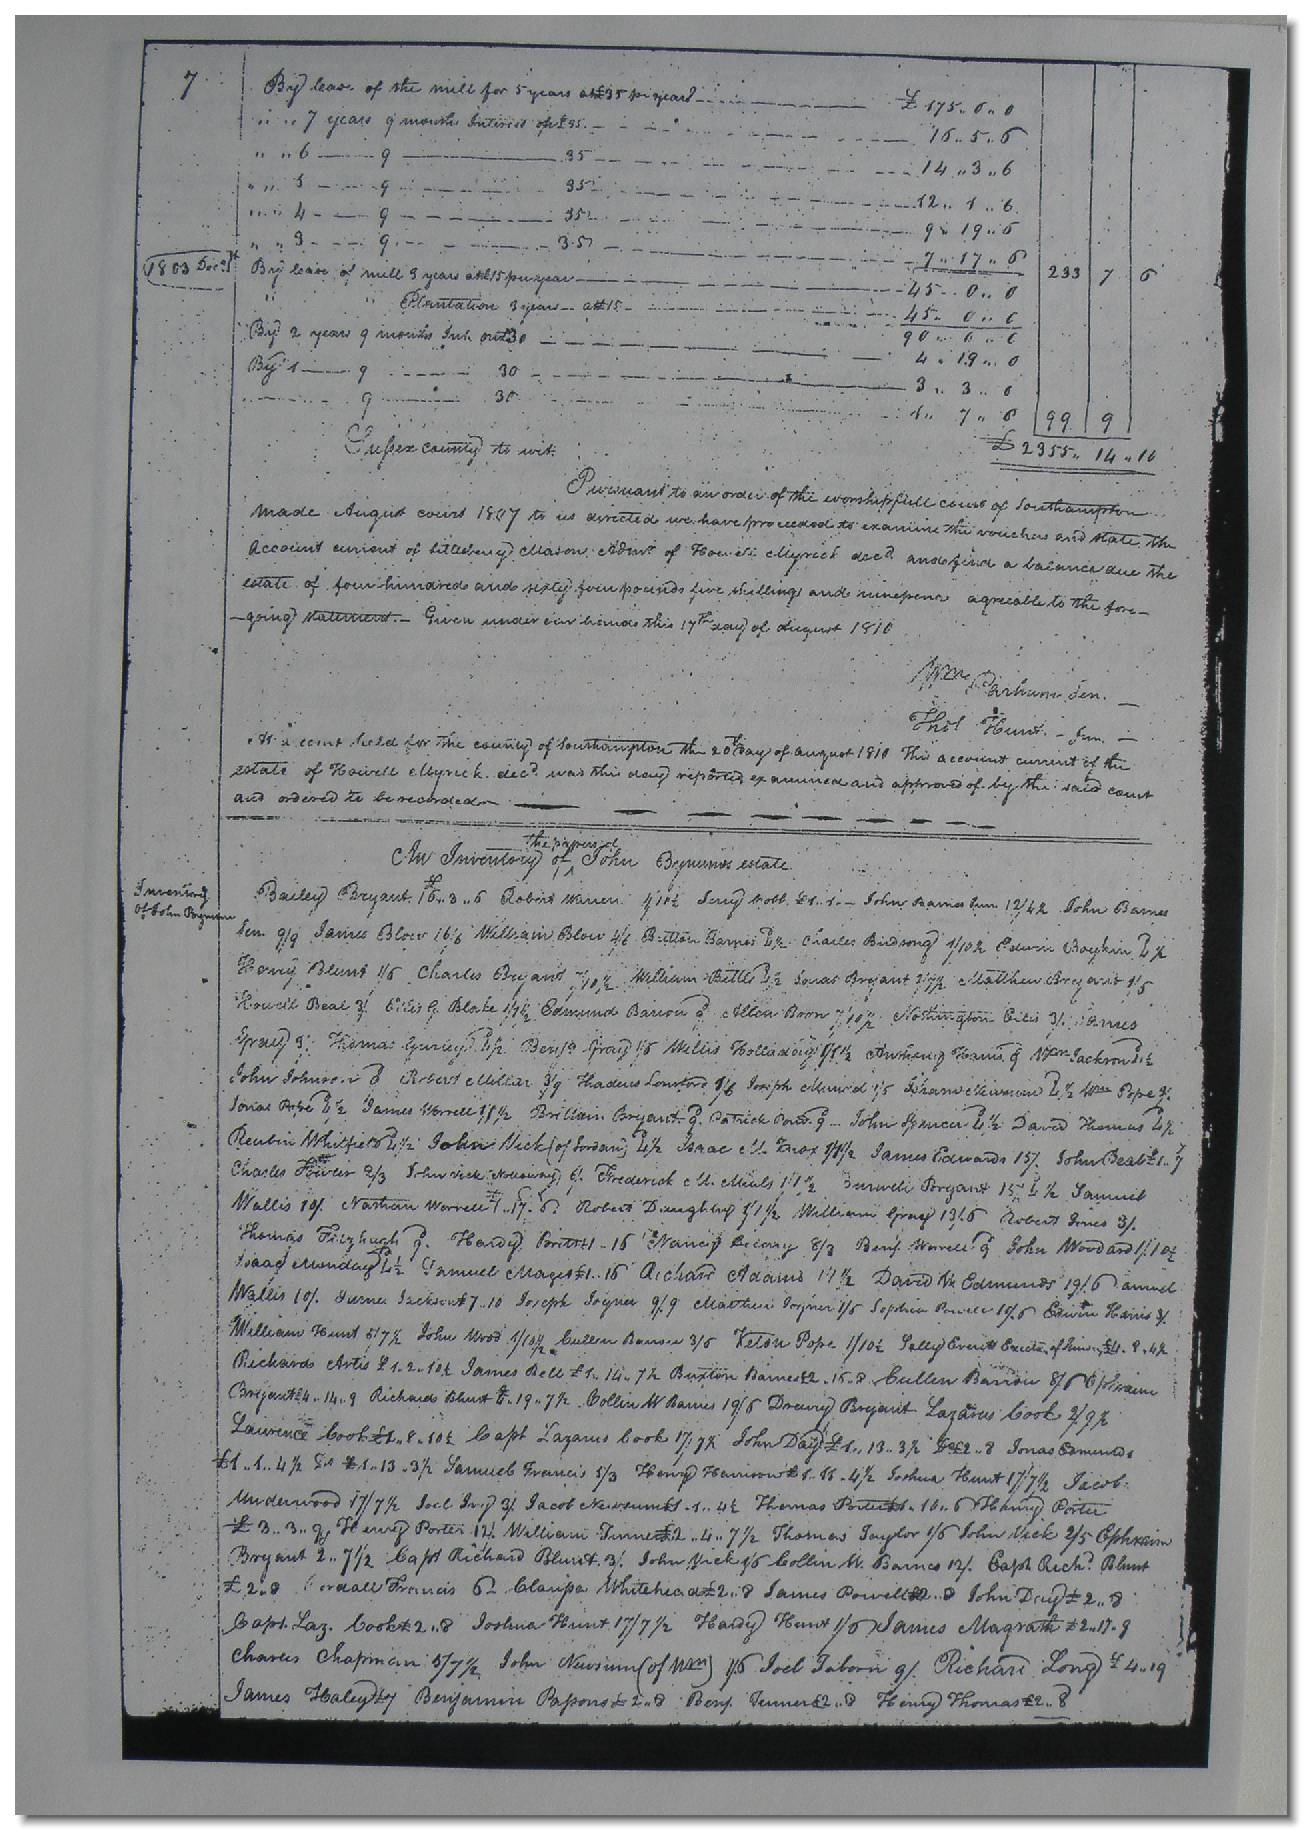 7 By lease of the mill for 5 years at £35 pr year £ 175 .. 0 .. 0
" " 7 years 9 months Interest of £35. 16 .. 5 .. 6
" " 6 9 35 14 .. 3 .. 6
" " 5 9 35 12 .. 1 .. 6
" " 4 9 35 9 .. 19 .. 6
" " 3 9 35 7 .. 17 .. 6 233 7 6
1803 Decr. 1st By lease of mill 3 years at £15 per year 45 .. 0 .. 0
" " Plantation 3 years at £15 45 .. 0 .. 0
90 .. 0 .. 0
By 2 years 9 months Int. on £30 4 .. 19 .. 0
By 1 9 30 3 .. 3 .. 0
9 30 1 .. 7 .. 0 99 9
Sussex county to wit. £ 2355 .. 14 .. 10
Pursuant to an order of the worshipfull court of Southampton
made August court 1807 to us directed we have proceeded to examine the vouchers and state the
account current of Littleberry Mason Admr of Howell Myrick decd and find a balance due the
estate of four hundred and sixty four pounds five shillings and ninepence agreable to the fore-
-going statement. Given under our hands this 17th day of August 1810
Wm Parham Sen.
Thos Hunt Jun.
At a court held for the county of Southampton the 20th day of august 1810 This account current of the
estate of Howell Myrick decd. was this day reported examined and approved of by the said court
and ordered to be recorded
the papers of
An Inventory of ^ John Bynums estate
Inventory
of John Bynum
Bailey Bryant 16 .. 3 .. 6 Robert Warren 1/10½ Jerry Cobb £1 .. 1 John Barnes Jun 12/4½ John Barnes
Sen 9/9 James Blow 16/6 William Blow 4/6 Britton Barnes 4½ Charles Birdsong 1/10½ Edwin Boykin 4½
Henry Blunt 1/6 Charles Bryant 7/10½ William Bittle 4½ Jonas Bryant 2/7½ Matthew Bryant 1/5
Howell Beal 3/ Ellis G Blake 1/1½ Edmund Barrow 9 Allen Boon 7/10½ Nothington Ellis 3/ James
Gray 3/ Thomas Gurley 4½ Benja Gray 1/6 Willis Holladay 1/1½ Anthony Harris 9 Wm Jackson 4½
John Johnson 9 Robert Millar 3/9 Thadeus Lunsford 1/6 Joseph Mumd 1/5 4½ Wm Pope 3/
Jonas Pope 4½ James Worrell 1/1½ Brittain Bryant 9 Patrick 9 John Spencer 4½ David Thomas 4½
Reubin Whitfield 4½ John Vick (of Jordan) 4½ Isaac M. Knox 1/1½ James Edwards 15/ John Beal £1 .. 7
Charles 2/3 John Vick 6/ Frederick M. Meals 1/1½ Burwell Bryant 15/4½ Samuel
Wallis 10/ Nathan Worrell £1 .. 17 .. 6 Robert Daughtry 1/1½ William Gray 13/6 Robert Jones 3/
Thomas Fitzhugh 9 Hardy Britt £1 .. 16 Nancy 8/3 Benj Worrell 9 John Woodard 1/10½
Isaac Munday 4½ Samuel Maget £1 .. 16 Richard Adams 1/1½ David W Edmunds 19/6 Samuel
Wallis 10/ James Jackson £7 .. 10 Joseph Joyner 9/9 Matthew Joyner 1/6 Sophia Powell 10/6 Edwin Harris 3/
William Hunt 5/7½ John Wood 1/10½ Cullen Barrow 3/6 Kelon Pope 1/10½ Sally Everitt Exectx. of Simon £4 .. 8 .. 4½
Richard Artis £1 .. 2 .. 10½ James Bell £1 .. 14 .. 7½ Buxton Barnes £2 .. 15 .. 8 Cullen Barrow 8/6 Ephraim
Bryant £4 .. 14 .. 9 Richard Blunt £ .. 19 .. 7½ Collin W Barnes 19/6 Drewry Bryant Lazarus Cook 2/9½
Laurence Cook £1 .. 8 .. 10½ Capt Lazarus Cook 17/7½ John Day £1 .. 13 .. 3½ Do £2 .. 8 Jonas Edmunds
£1 .. 1 .. 4½ Do £1 .. 13 .. 3½ Samuel Francis 5/3 Henry Harrison £1 .. 11 .. 4½ Joshua Hunt 17/7½ Jacob
Underwood 17/7½ Joel Ivy 3/ Jacob Newsum £1 .. 1 .. 4½ Thomas Porter £1 .. 10 .. 6 Henry Porter
£3 .. 3 .. 9 Henry Porter 12/ William Turner £2 .. 4 .. 7½ Thomas Taylor 1/6 John Vick 2/5 Ephraim
Bryant 2 .. 7½ Capt Richard Blunt 3/ John Vick 1/6 Collin W. Barnes 12/ Capt Richd. Blunt
£2 .. 8 Cordall Francis 6 Clarissa Whitehead £2 .. 8 James Powell £2 .. 8 John Day £2 .. 8
Capt. Laz. Cook £2 .. 8 Joshua Hunt 17/7½ Hardy Hunt 1/6 James Magrath £2 .. 17 .. 9
Charles Chapman 5/7½ John Newsum (of Wm) 1/6 Joel Taborn 9/ Richard Long £4 .. 19
James Haley £7 Benjamin Passons £2 .. 8 Benj. Turner £2 .. 8 Henry Thomas £2 .. 8